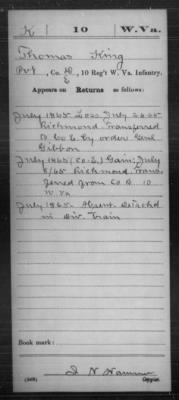 K | 10 | W. Va.
Thomas King
Pvt, Co. D, 10 Reg't W. Va. Infantry.
E
Appears on Returns as follows:
July 1865 Loss July 1865
Richmond Transferred
to Co E by order Genl
Gibbon
July 1865 (Co. E.) Gain: July
8/65 Richmond Trans
ferred from Co D 10
W Va
July 1865. Absent Detachd
in Div. Train
Book mark:
Copyist.